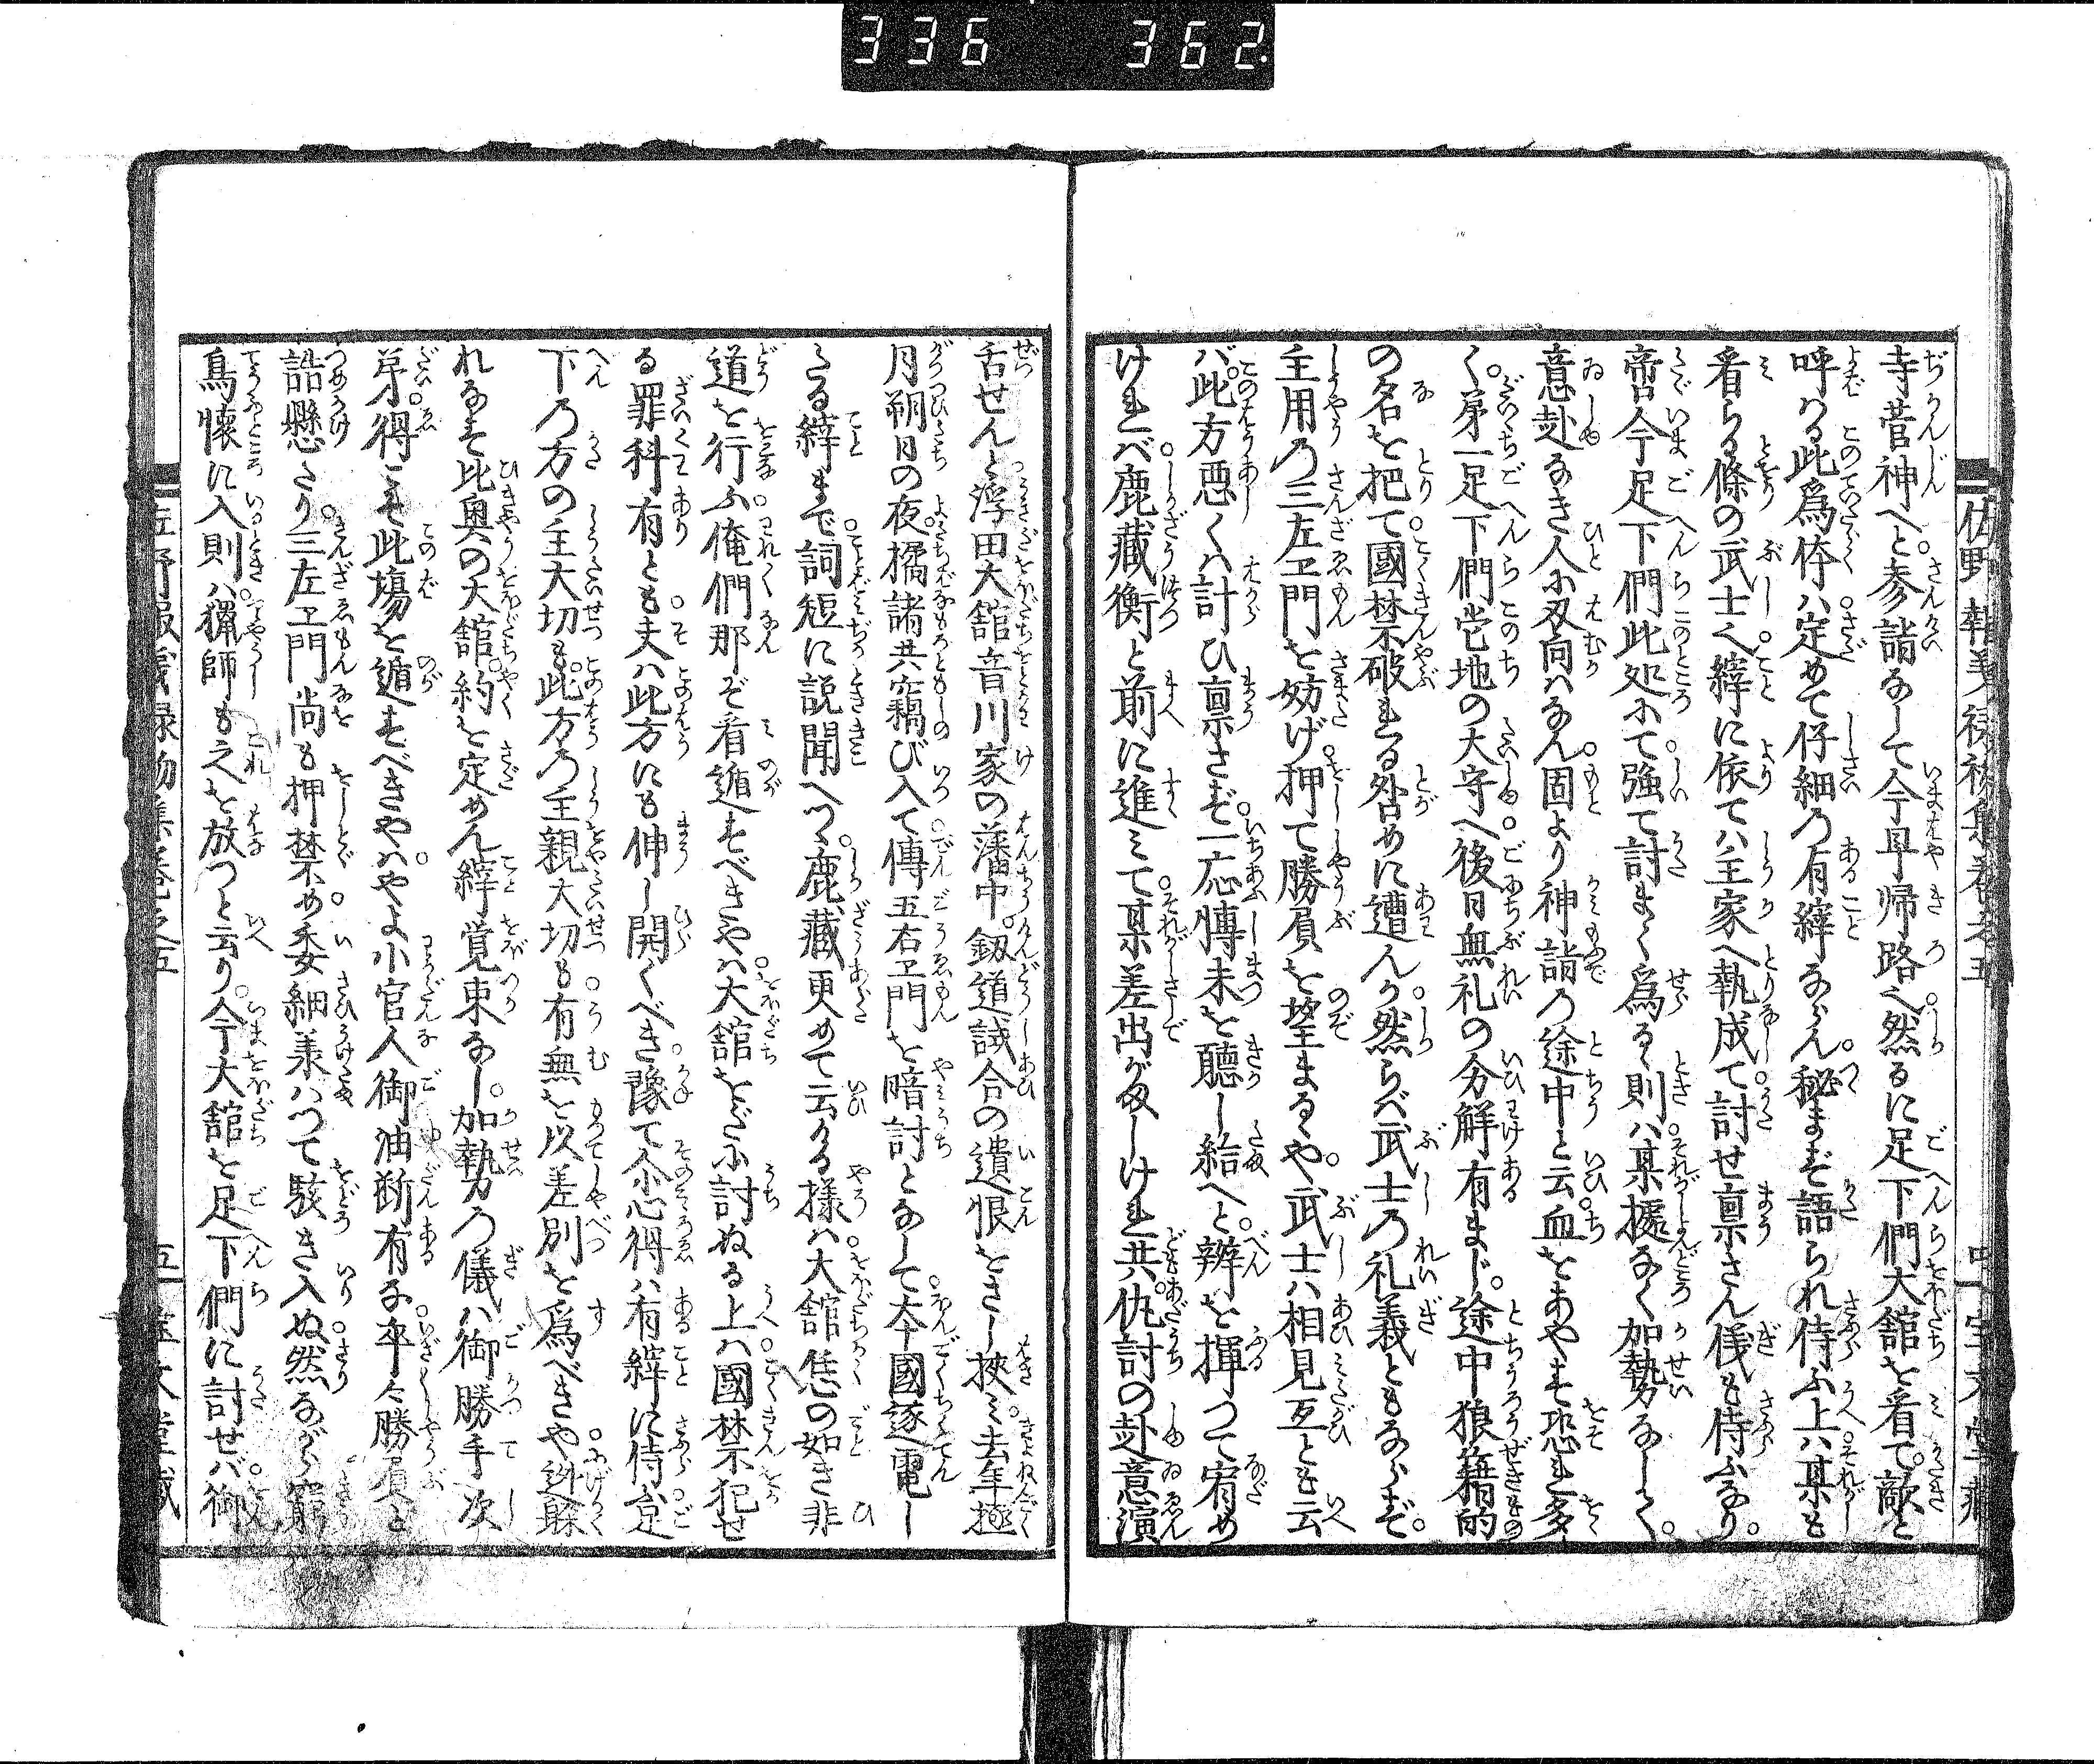 336 362
寺菅神へと。参詣なして今早帰路へ然るに足下們大舘を看て敵と
呼はる此爲体ハ定めて仔細の有縡ならん。秘まず語られ侍ふ上ハ某も
看らる條の武士へ。縡に依てハ主家へ執成て討せ稟さん儀も侍ふなり。
啻今足下們此処にて。強て討まく爲るゝ則ハ某據なく加勢なしく。
意趣なき人に刄向ハなん。固より神詣の途中と云血をあやまち恐れ多
く。第一足下們当地の大守へ後日無礼の分觧有まじ。途中狼籍的
の名を把て。國禁破れる咎めに遭んう。然らバ武士の礼義ともならず。
主用の三左エ門を妨げ。押て勝屓を望まるゝや。武士ハ相見互とも云
バ。此方悪くハ計ひ稟さず。一応膊末を聽し給へと。辨を揮つて宥め
けれバ。鹿藏衡と前に進ミて。某差出がましけれ共。仇討の趣意演
舌せんと浮田大舘音川家の藩中。釼道試合の遺恨をさし挾ミ。去年極
月朔日の夜。橘諸共竊び入て。傳五右エ門を暗討となして。本國逐電し
たる縡まで。詞短に説聞へつ。鹿藏更めて云ける様ハ。大舘恁の如き非
道を行ふ。俺們那ぞ看遁すべきやハ。大舘をだに討ぬる上ハ。國禁犯せ
る罪科有とも。夫ハ此方にも伸し開くべき。豫て心得ハ有縡に侍。足
下の方の主大切も。此方の主親大切も。有無を以差別を爲べきや。迯躱
れなす比奥の大舘。約を定めん縡覚束なし。加勢の儀ハ御勝手次
第。得こそ此塲を遁すべきやハ。やよ小官人御油断有な。卒々勝屓と
詰懸たり。三左エ門尚も押禁め。委細羕ハつて駭き入ぬ。然ながら窮
鳥懷に入則ハ。猟師も之を放つと云り。今大舘を足下們に討せバ。御